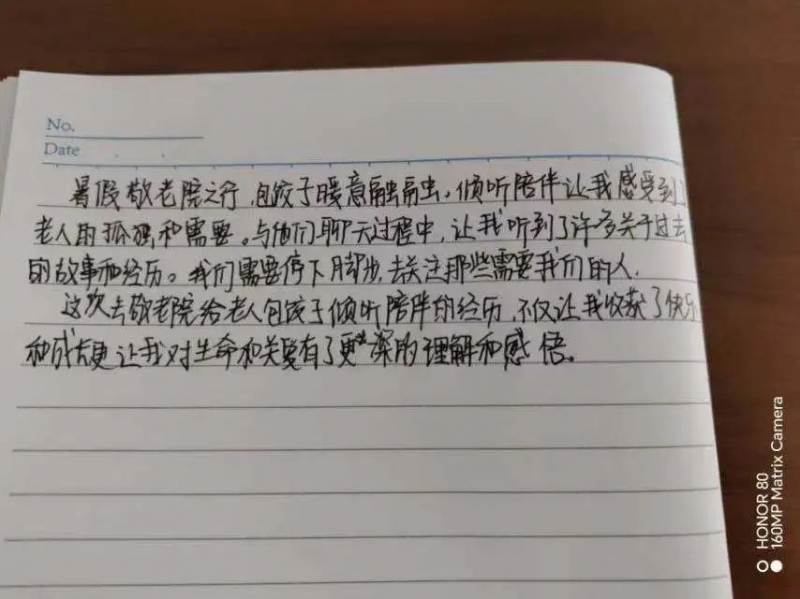 No.
Date
暑假敬老院之行,包饺子暖意融融。倾听陪伴让我感受到
老人的孤独和需要。与他们聊天过程中,让我听到了许多关于过去
的故事和经历。我们需要停下脚步,去关注那些需要我们的人.
这次去敬老院给老人包饺子倾听陪伴的经历,不仅让我收获了快乐
和成长更让我对生命和关爱有了更深的理解和感悟。
HONOR 80
160MP Matrix Camera